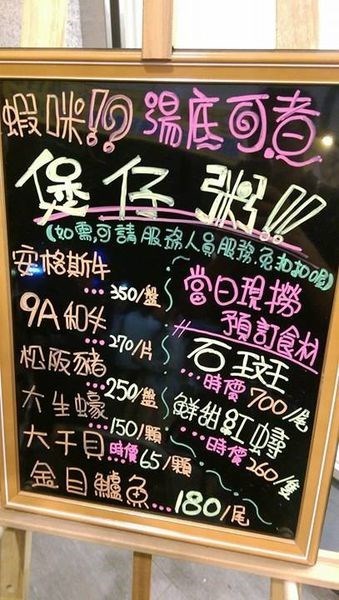 蝦咪!!? 湯底可煮
堡仔粥!!!
(如需,可請服務人員服務,免扣扣喔)
安格斯牛
...350/盤
9A和尖
...270/片
松阪豬
...250/盤
大生蠔
...150/顆
大干貝
時價65/顆
金目鱸魚...180/尾
當日現撈
#預訂食材
石斑
...時價700/尾
鮮甜紅蟳
...時價260/隻